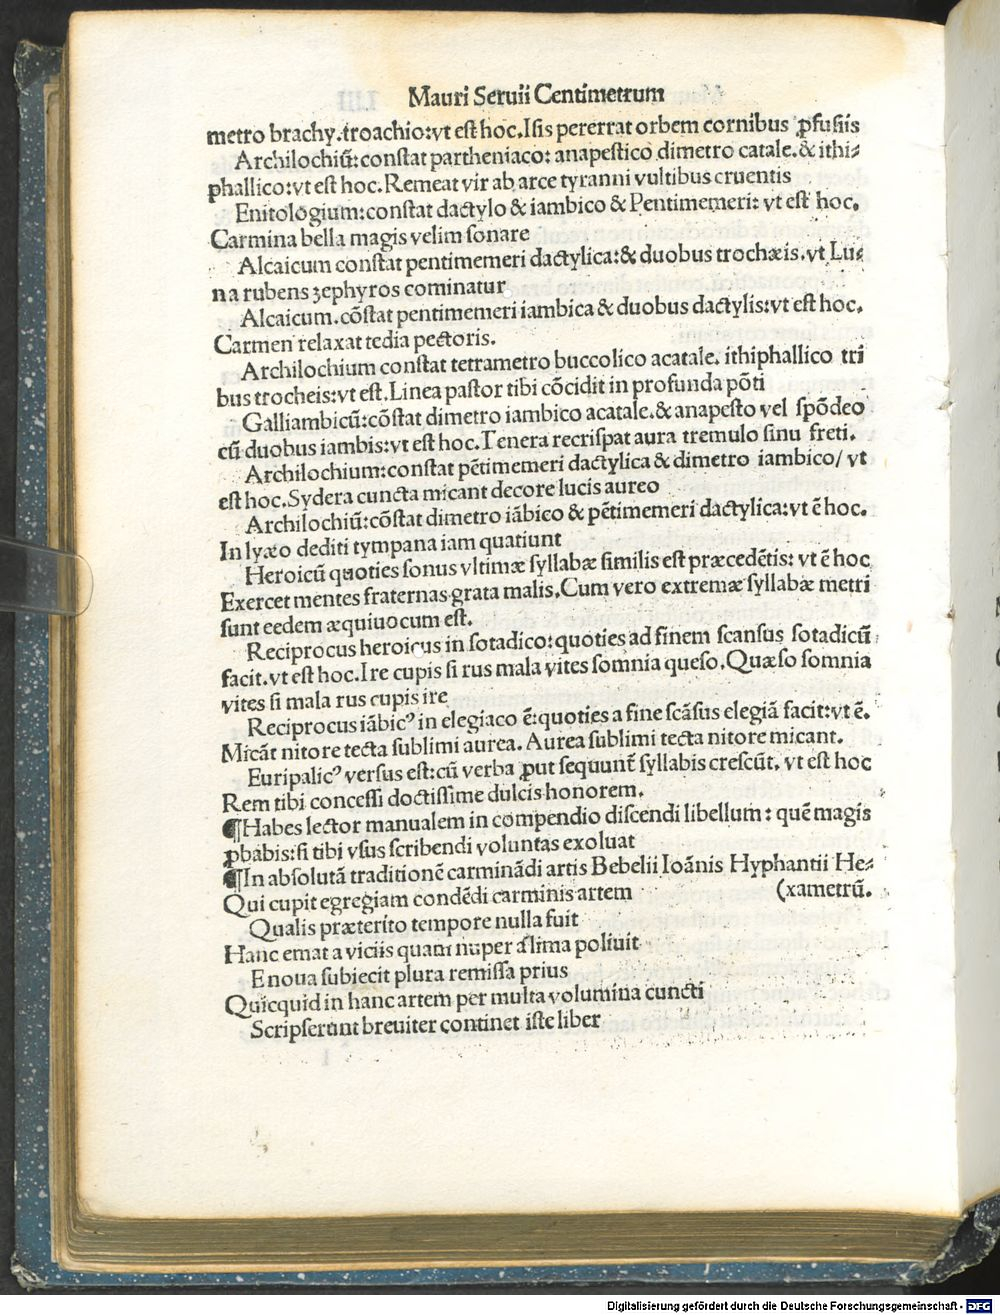 Mauri Seruii Centimetrum
metro brachy.troachio:vt est hoc.Isis pererrat orbem cornibus ꝓfusiis
Archilochiū:constat partheniaco: anapestico dimetro catale.& ithi⸗
phallico:vt est hoc.Remeat vir ab arce tyranni vultibus cruentis
Enitologium:constat dactylo & iambico & Pentimemeri: vt est hoc.
Carmina bella magis velim sonare
Alcaicum constat pentimemeri dactylica:& duobus trochæis.vt Lu⸗
na rubens zephyros cominatur
Alcaicum.cōstat pentimemeri iambica & duobus dactylis:vt est hoc.
Carmen relaxat tedia pectoris.
Archilochium constat tetrametro buccolico acatale. ithiphallico tri
bus trocheis:vt est.Linea pastor tibi cōcidit in profunda pōti
Galliambicū:cōstat dimetro iambico acatale.& anapesto vel spōdeo
cū duobus iambis:vt est hoc.Tenera recrispat aura tremulo sinu freti.
Archilochium:constat pētimemeri dactylica & dimetro iambico/ vt
est hoc.Sydera cuncta micant decore lucis aureo
Archilochiū:cōstat dimetro iābico & pētimemeri dactylica:vt ē hoc.
In lyæo dediti tympana iam quatiunt
Heroicū quoties sonus vltimæ syllabæ similis est præcedētis: vt ē hoc
Exercet mentes fraternas grata malis.Cum vero extremæ syllabæ metri
sunt eedem æquiuocum est.
Reciprocus heroicus in sotadico:quoties ad finem scansus sotadicū
facit.vt est hoc.Ire cupis si rus mala vites somnia queso.Quæso somnia
vites si mala rus cupis ire
Reciprocus iābicꝰ in elegiaco ē:quoties a fine scāsus elegiā facit:vt ē.
Micāt nitore tecta sublimi aurea. Aurea sublimi tecta nitore micant.
Euripalicꝰ versus est:cū verba ꝓut sequunt̄ syllabis crescūt. vt est hoc
Rem tibi concessi doctissime dulcis honorem.
¶Habes lector manualem in compendio discendi libellum: quē magis
ꝓbabis:si tibi vsus scribendi voluntas exoluat
¶In absolutā traditionē carminādi artis Bebelii Ioānis Hyphantii He⸗
Qui cupit egregiam condēdi carminis artem (xametrū.
Qualis præterito tempore nulla fuit
Hanc emat a viciis quam nuper a̅ lima poliuit
E noua subiecit plura remissa prius
Quicquid in hanc artem per multa volumina cuncti
Scripserunt breuiter continet iste liber
Digitalisierung gefördert durch die Deutsche Forschungsgemeinschaft - DFG